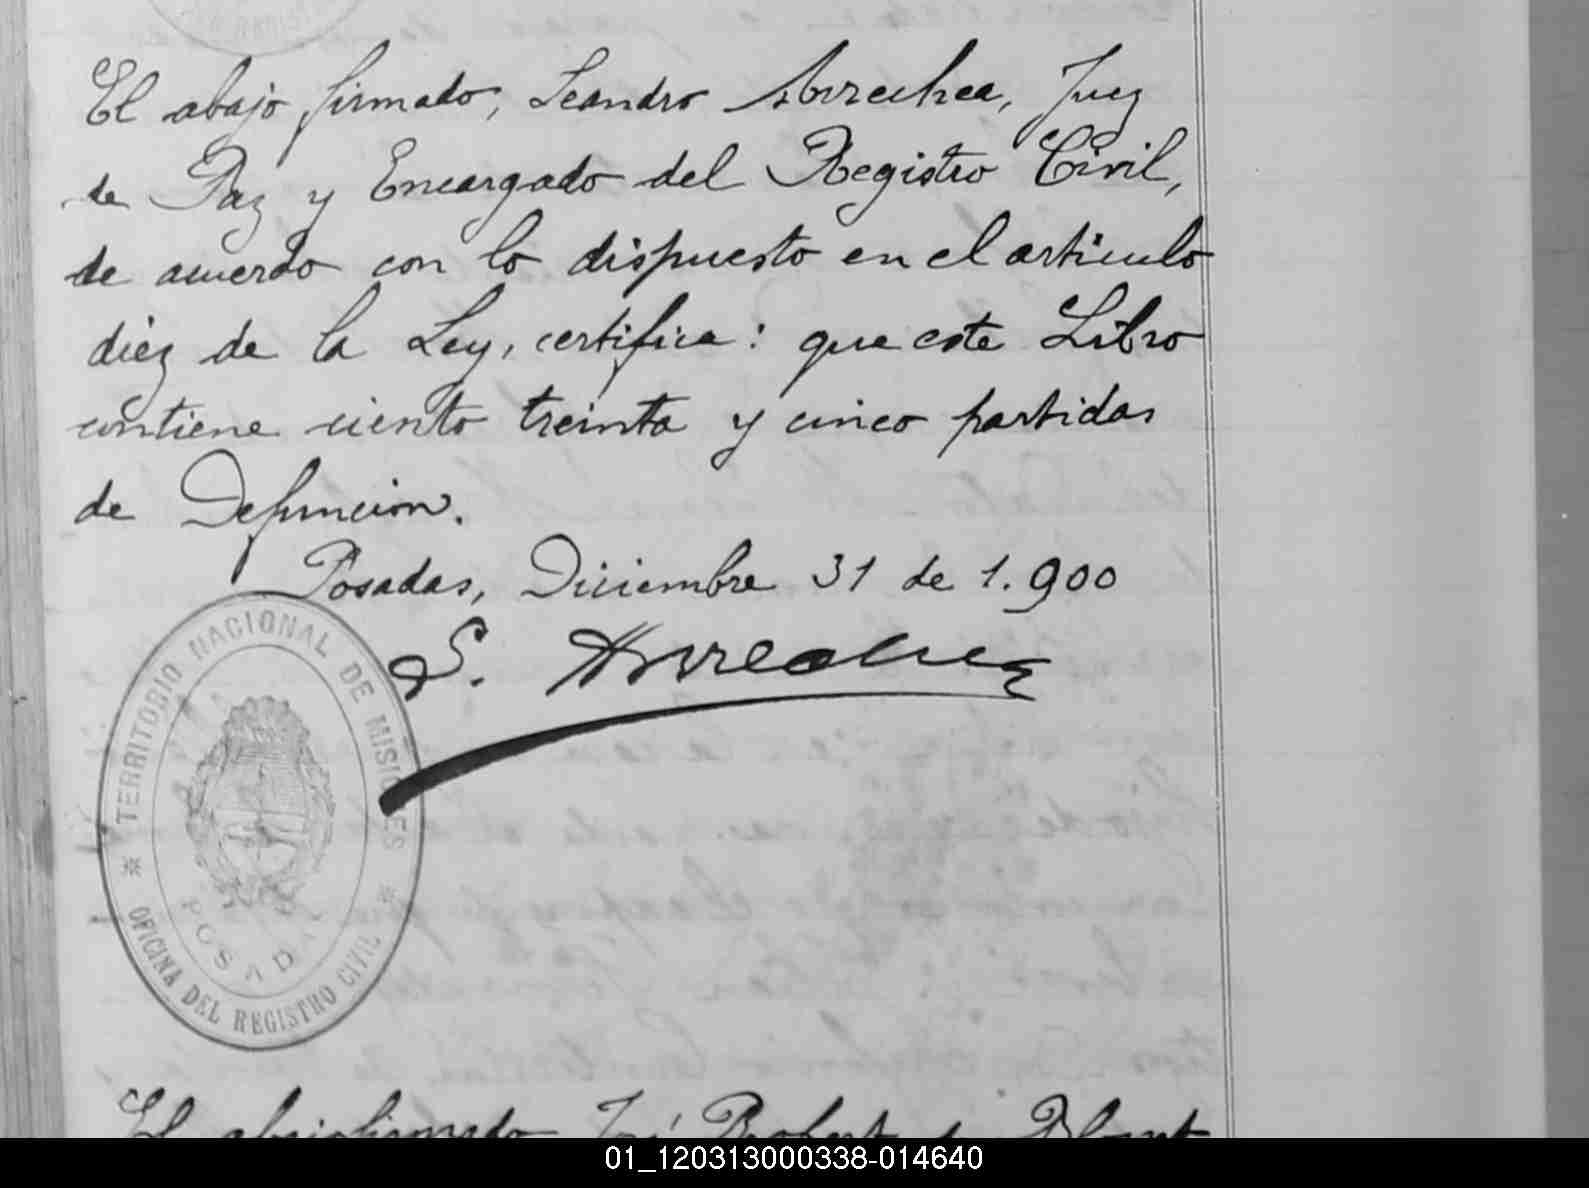 El abajo firmado, Leandro Arrechea, Juez
de Paz y Encargado del Registro Civil,
de acuerdo con lo dispuesto en el artículo
diez de la Ley, certifica: que este Libro
contiene ciento treinta y cinco partidas
de Defuncion.
Posadas, Diciembre 31 de 1.900
L. Arrechea
TERRITORIO NACIONAL DE MISIONES
POSADAS
OFICINA DEL REGISTRO CIVIL
El abajo firmado José Robert
01_120313000338-014640